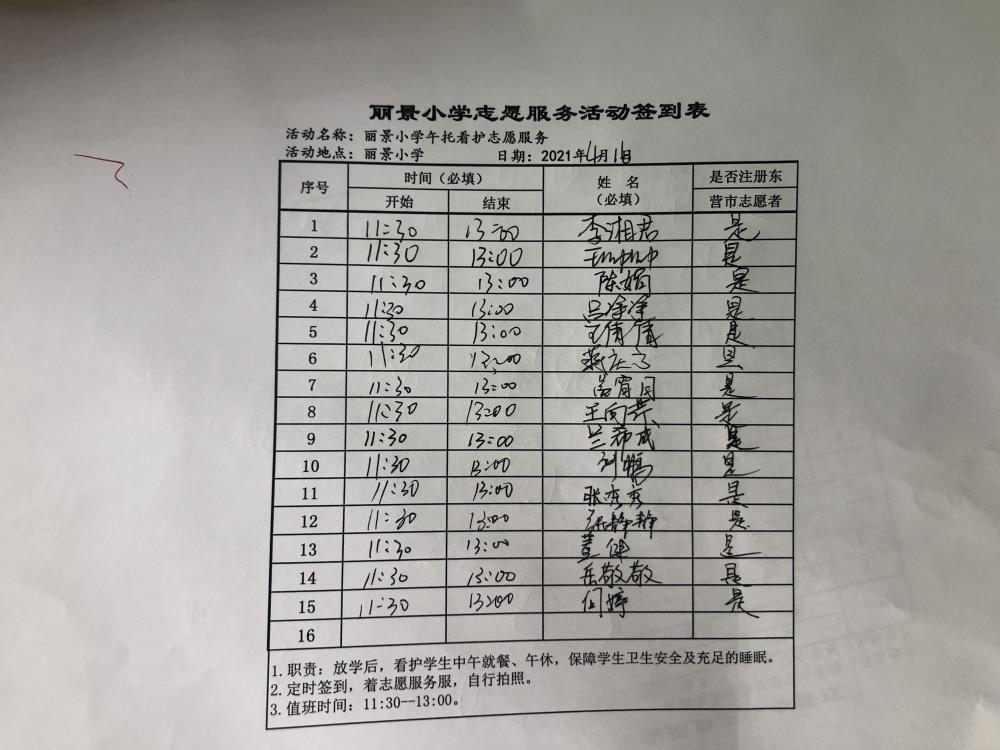 丽景小学志愿服务活动签到表
活动名称：丽景小学午托看护志愿服务
活动地点：丽景小学 日期：2021年4月16日
序号 时间（必填） 姓 名（必填） 是否注册东营市志愿者
开始 结束
1 11:30 13:00 李湘君 是
2 11:30 13:00 是
3 11:30 13:00 陈娟 是
4 11:30 13:00 吕净净 是
5 11:30 13:00 王倩倩 是
6 11:30 13:00 是
7 11:30 13:00 是
8 11:30 13:00 是
9 11:30 13:00 兰希成 是
10 11:30 13:00 是
11 11:30 13:00 张秀秀 是
12 11:30 13:00 是
13 11:30 13:00 是
14 11:30 13:00 岳敬敬 是
15 11:30 13:00 闫婷 是
16
1.职责：放学后，看护学生中午就餐、午休，保障学生卫生安全及充足的睡眠。
2.定时签到，着志愿服务服，自行拍照。
3.值班时间：11:30--13:00。